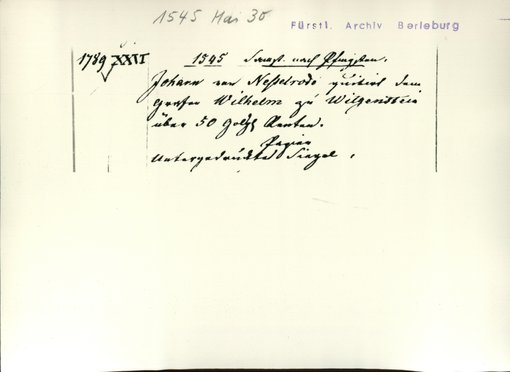 1545 Mai 30
Fürstl. Archiv Berleburg
1789 XXII
1545 Sampt. nach Pfingsten.
Johann von Nesselrode quitirt dem
Grafen Wilhelm zu Witgenstein
über 50 Golfl Renten.
Papier
Untergedrücktes Siegel.